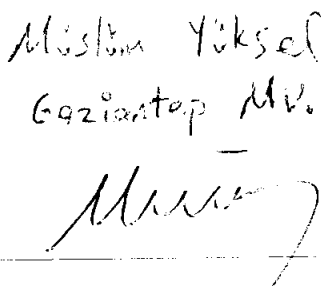 Müslüm Yüksel
Gaziantep Mv.